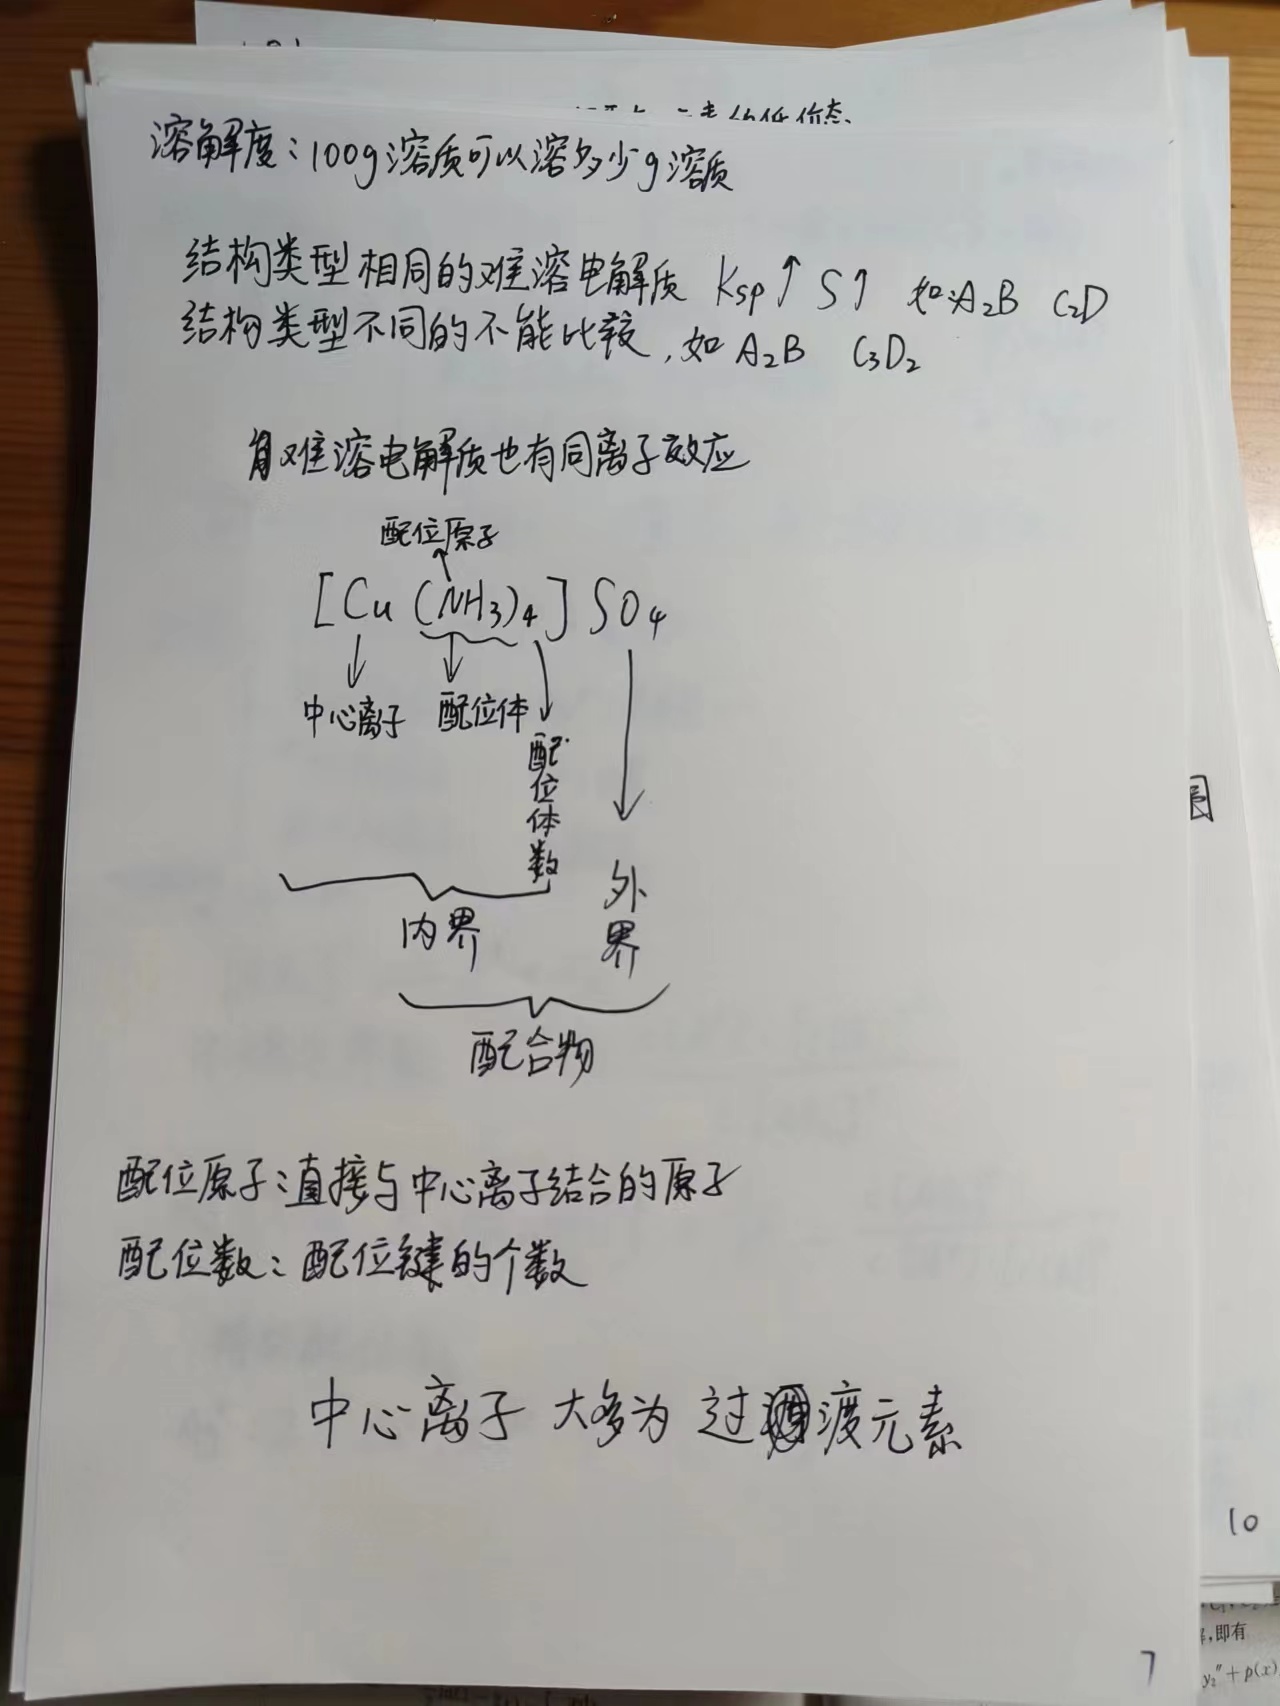 溶解度：100g溶质可以溶多少g溶质
结构类型相同的难溶电解质 Ksp↑ S↑ 如：A₂B C₂D
结构类型不同的不能比较，如 A₂B C₃D₂
难溶电解质也有同离子效应
配位原子
[Cu(NH₃)₄]SO₄
中心离子 配位体
配位体数
外界
内界
配合物
配位原子：直接与中心离子结合的原子
配位数：配位键的个数
中心离子 大多为 过渡元素
7
10
，即有
y₂″+p(x)